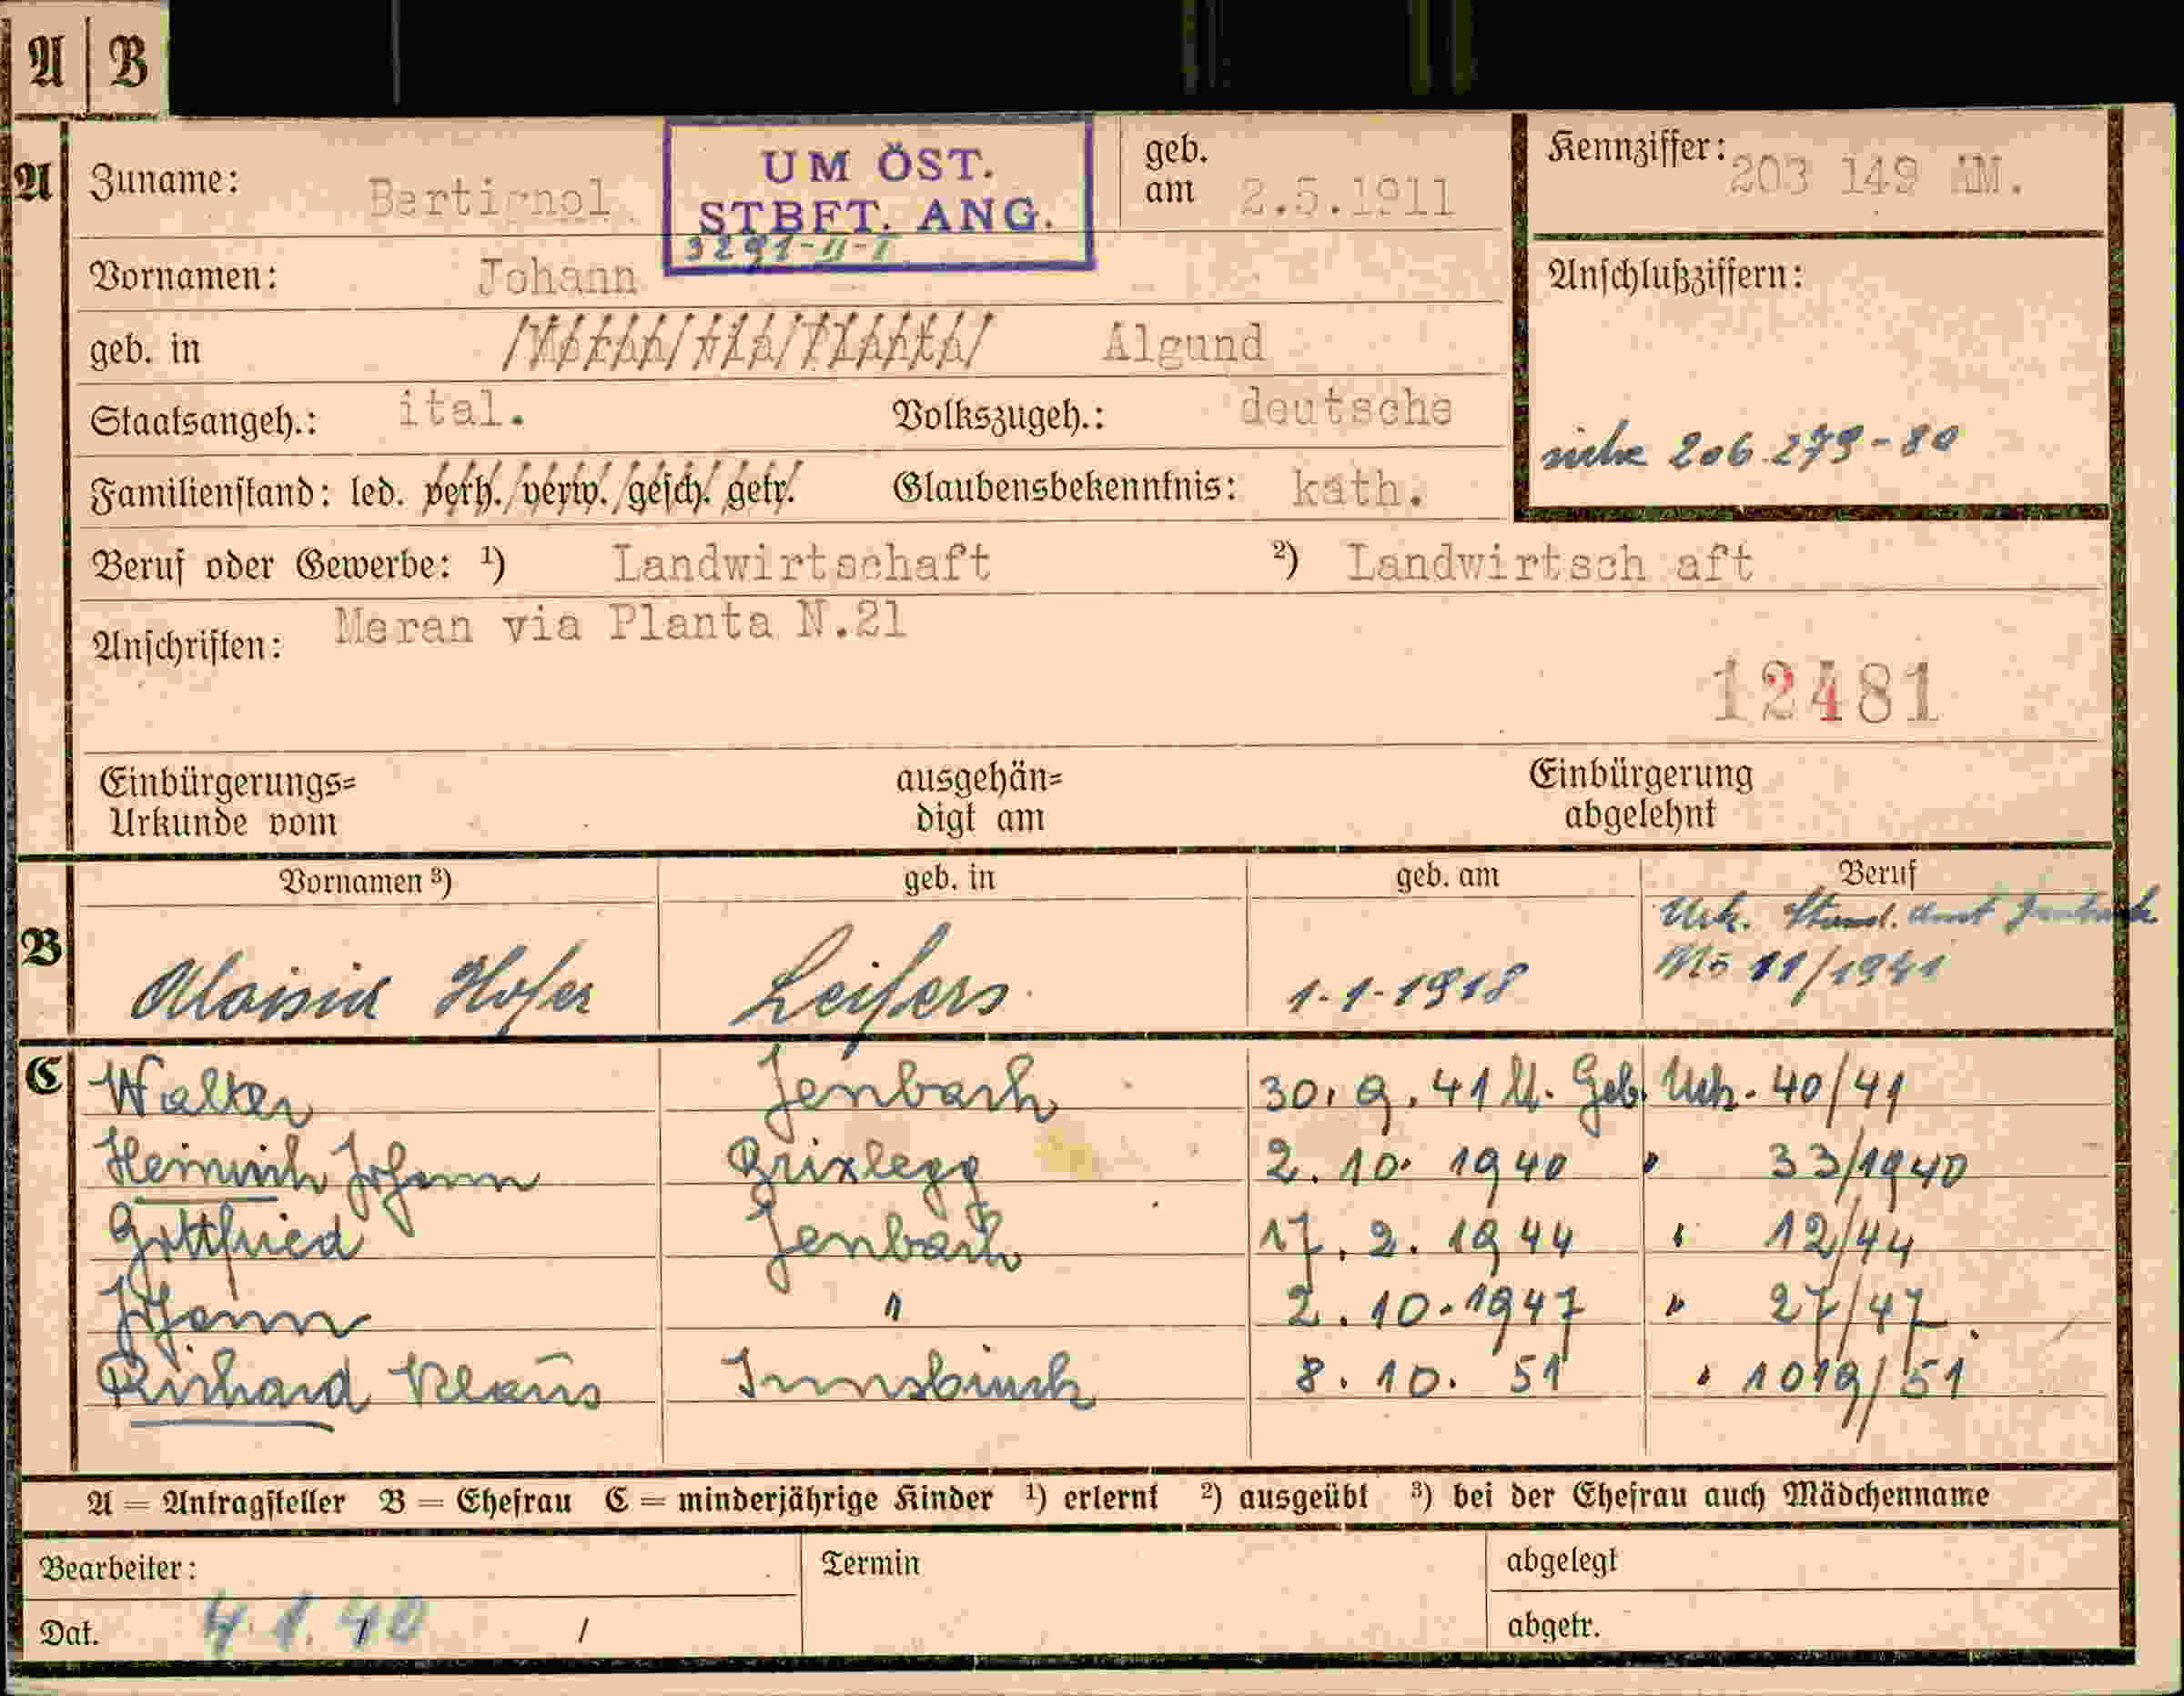 A B
A Zuname: Bertignol
UM ÖST.
STBFT. ANG.
3291-II-I
geb. am 2.5.1911
Kennziffer: 203 149 AM.
Vornamen: Johann
Anschlußziffern:
geb. in Algund
Staatsangeh.: ital. Volkszugeh.: deutsche
siehe 206.279-80
Familienstand: led. verh. verw. gesch. getr. Glaubensbekenntnis: kath.
Beruf oder Gewerbe: ¹) Landwirtschaft ²) Landwirtsch aft
Anschriften: Meran via Planta N.21
12481
Einbürgerungs= Urkunde vom ausgehän= digt am Einbürgerung abgelehnt
Vornamen ³) geb. in geb. am Beruf
Urk. Stand. Amt Jenbach
B Aloisia Hofer Leifers 1-1-1918 No 11/1941
C Walter Jenbach 30. 9. 41 lt. Geb. Urk. 40/41
Heinrich Johann Brixlegg 2. 10. 1940 " 33/1940
Gottfried Jenbach 17. 2. 1944 " 12/44
Johann " 2. 10. 1947 " 27/47.
Richard Klaus Innsbruck 8. 10. 51 " 1019/51
A = Antragsteller B = Ehefrau C = minderjährige Kinder ¹) erlernt ²) ausgeübt ³) bei der Ehefrau auch Mädchenname
Bearbeiter: Termin abgelegt
Dat. 4.1.40 / abgetr.